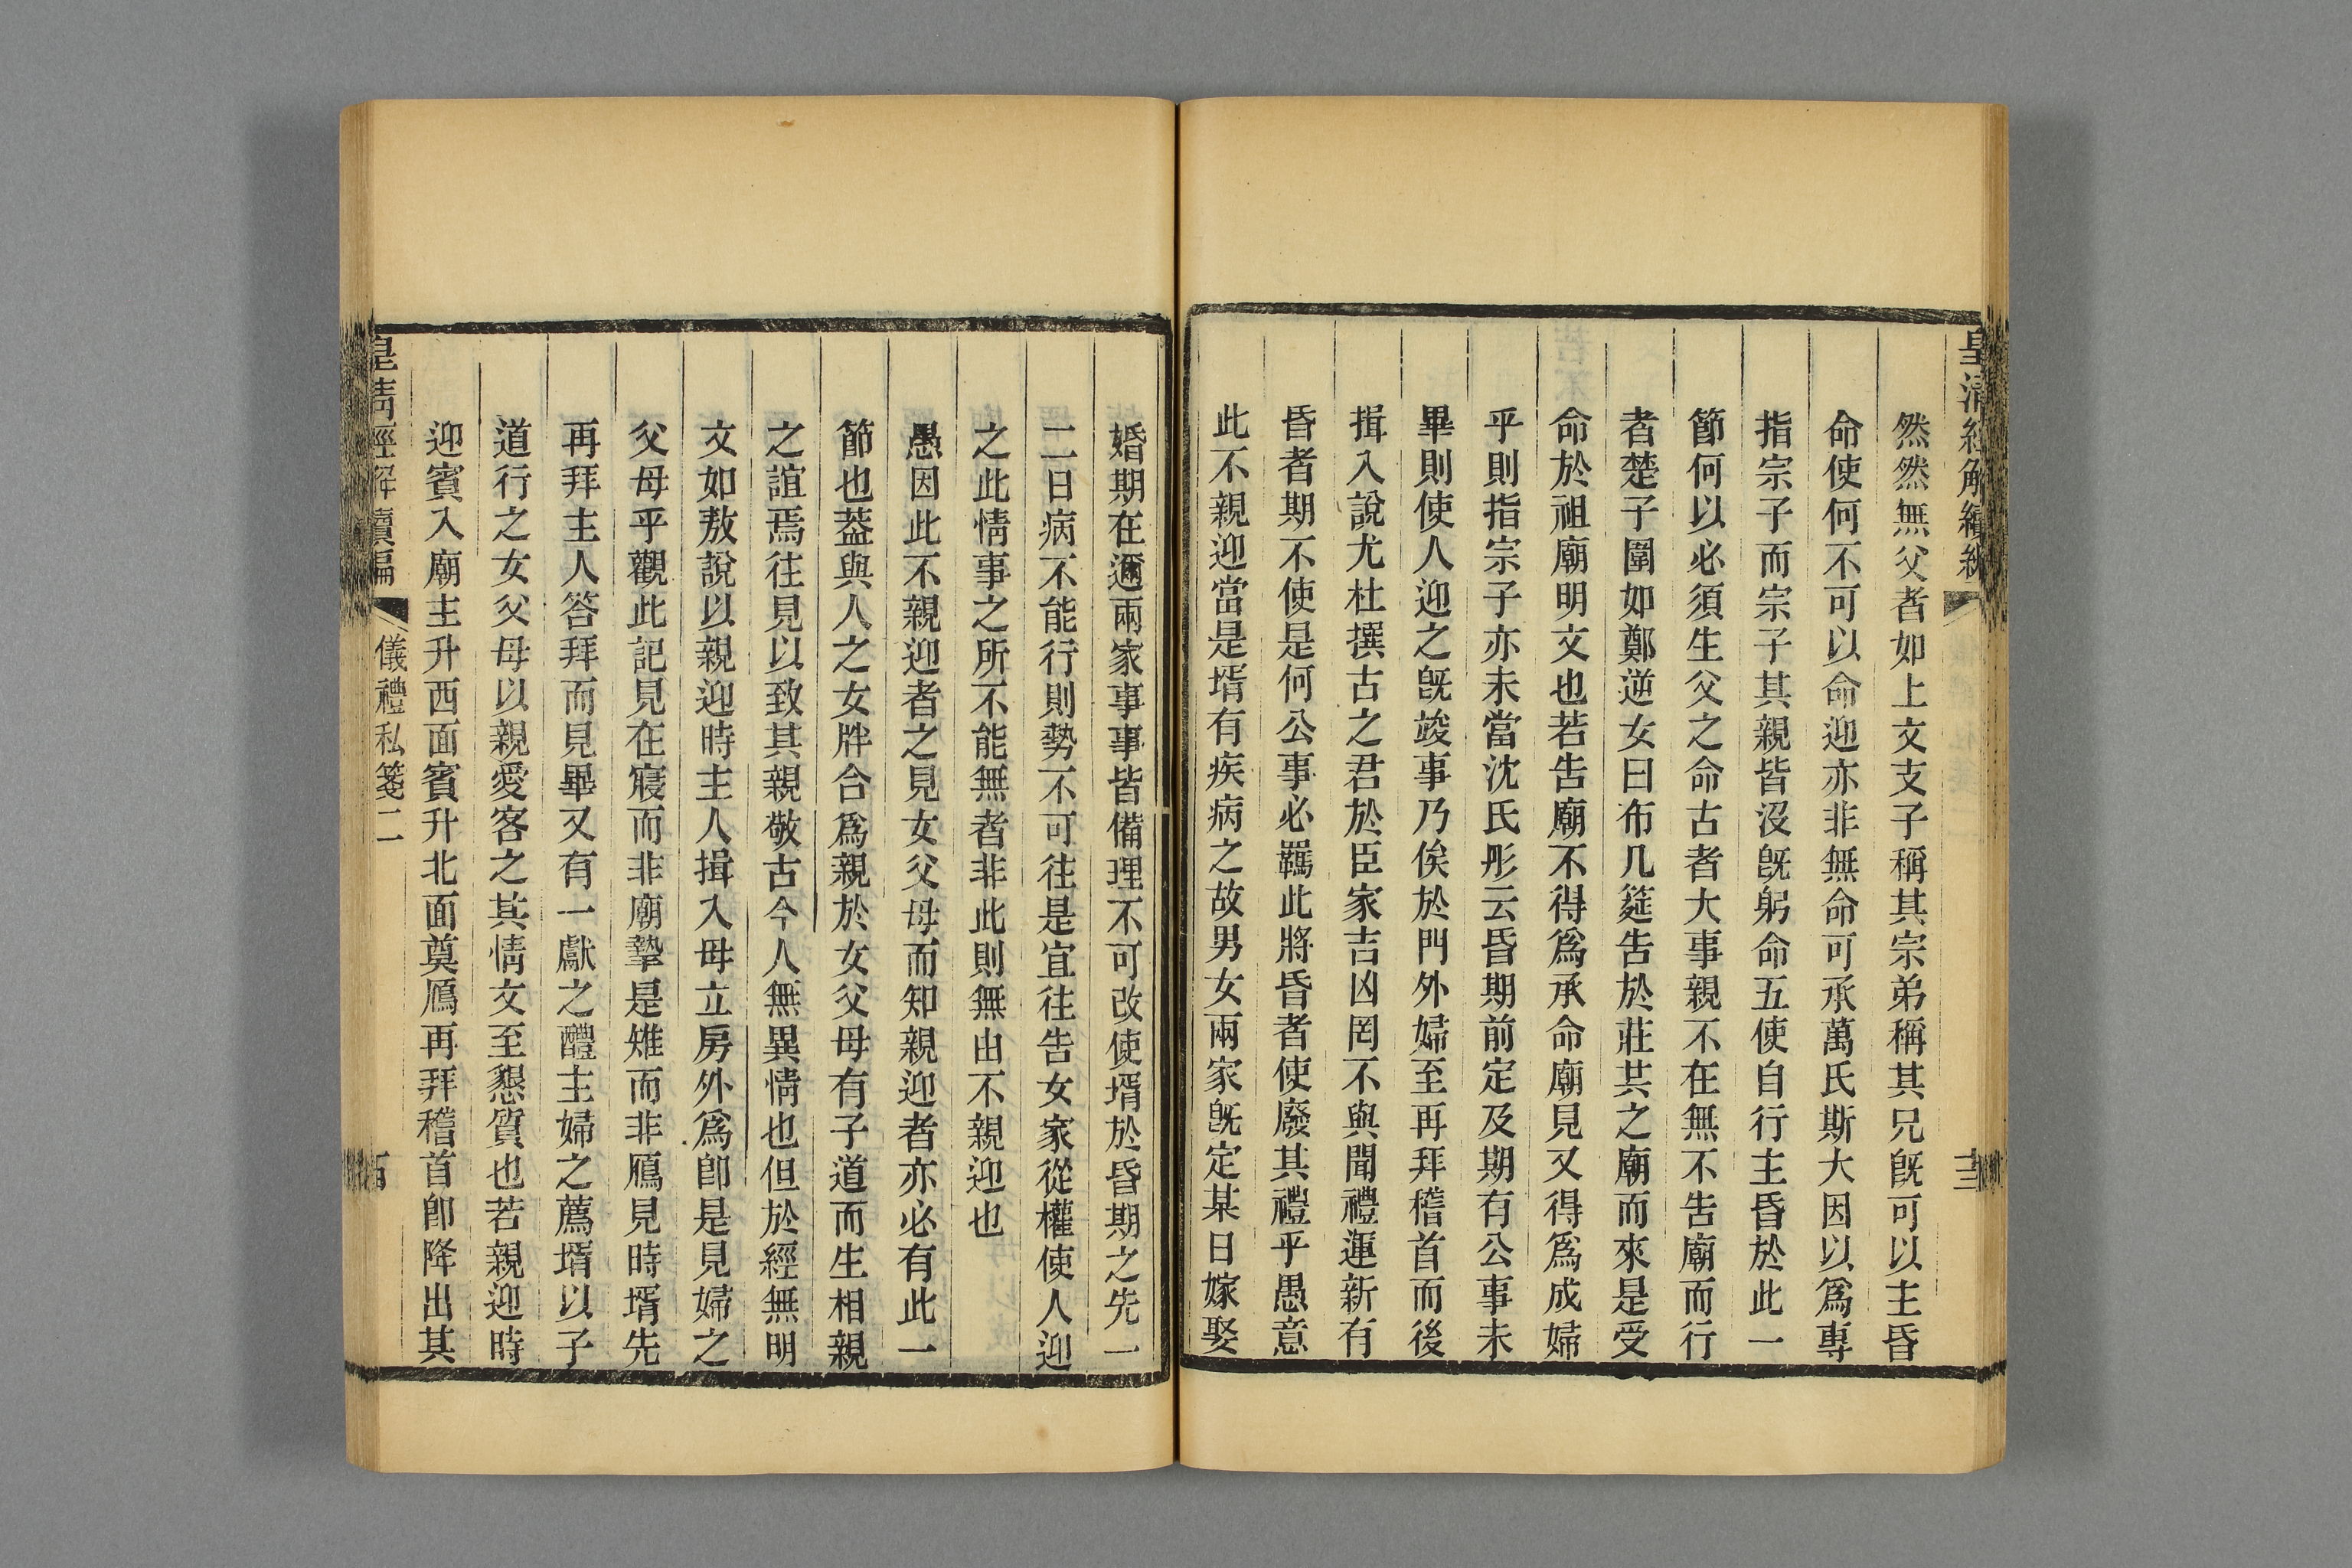 皇清經解續編
然然無父者如上文支子稱其宗弟稱其兄旣可以主昏
命使何不可以命迎亦非無命可承萬氏斯大因以爲專
指宗子而宗子其親皆沒旣躬命五使自行主昏於此一
節何以必須生父之命古者大事親不在無不告廟而行
者楚子圍如鄭逆女曰布几筵告於莊共之廟而來是受
命於祖廟明文也若告廟不得爲承命廟見又得爲成婦
乎則指宗子亦未當沈氏彤云昏期前定及期有公事未
畢則使人迎之旣竣事乃俟於門外婦至再拜稽首而後
揖入說尤杜撰古之君於臣家吉凶罔不與聞禮運新有
昏者期不使是何公事必羈此將昏者使廢其禮乎愚意
此不親迎當是壻有疾病之故男女兩家旣定某日嫁娶
婚期在邇兩家事事皆備理不可改使壻於昏期之先一
二日病不能行則勢不可往是宜往告女家從權使人迎
之此情事之所不能無者非此則無由不親迎也
愚因此不親迎者之見女父母而知親迎者亦必有此一
節也葢與人之女牉合爲親於女父母有子道而生相親
之誼焉往見以致其親敬古今人無異情也但於經無明
文如敖說以親迎時主人揖入母立房外爲卽是見婦之
父母乎觀此記見在寢而非廟摯是雉而非鴈見時壻先
再拜主人答拜而見畢又有一獻之醴主婦之薦壻以子
道行之女父母以親愛客之其情文至懇質也若親迎時
迎賓入廟主升西面賓升北面奠鴈再拜稽首卽降出其
皇清經解續編
儀禮私箋二